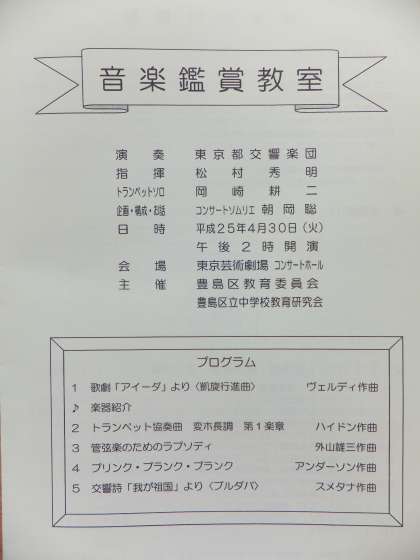 音楽鑑賞教室
演奏 東京都交響楽団
指揮 松村秀明
トランペットソロ 岡崎耕二
企画・構成・お話 コンサートソムリエ 朝岡聡
日時 平成25年4月30日(火)
午後2時開演
会場 東京芸術劇場 コンサートホール
主催 豊島区教育委員会
豊島区立中学校教育研究会
プログラム
1 歌劇「アイーダ」より〈凱旋行進曲〉 ヴェルディ作曲
♪ 楽器紹介
2 トランペット協奏曲 変ホ長調 第1楽章 ハイドン作曲
3 管弦楽のためのラプソディ 外山雄三作曲
4 プリンク・プランク・プランク アンダーソン作曲
5 交響詩「我が祖国」より〈ブルダバ〉 スメタナ作曲